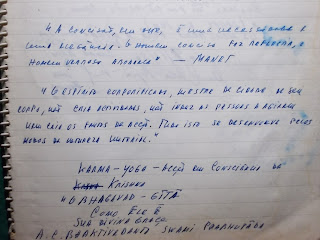 "A concisão, em arte, é uma necessidade e
uma elegância. O homem conciso faz refletir, o
homem verboso aborrece" — MANET
"O espírito corporificado, mestre da cidade de seu
corpo, não cria atividades, não induz as pessoas a agirem
nem cria os frutos da ação. Tudo isto se desenvolve pelos
modos da natureza material."
KARMA-YOGA - Ação em Consciência de
Krishna
"O BHAGAVAD-GITA
COMO ELE É
SUA DIVINA GRAÇA
A.C. BHAKTIVEDANTA SWAMI PRABHUPĀDA